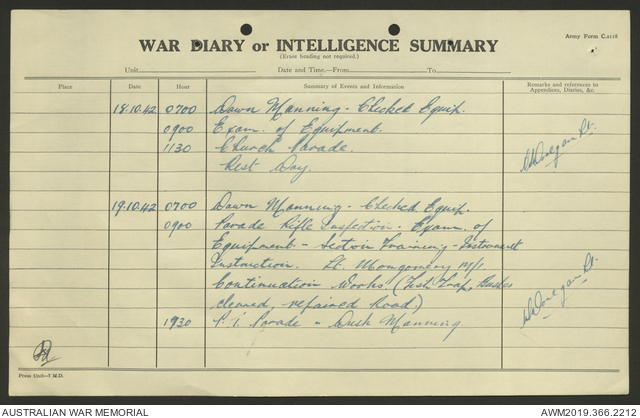 Army Form C.2118
WAR DIARY or INTELLIGENCE SUMMARY
(Erase heading not required.)
Unit Date and Time.—From To
Place Date Hour Summary of Events and Information Remarks and references to Appendices, Diaries, &c.
18.10.42 0700 Dawn Manning - Checked Equip.
0900 Exam. of Equipment.
1130 Church Parade.
Rest Day.
19.10.42 0700 Dawn Manning - Checked Equip.
0900 Parade Rifle Inspection - Exam. of
Equipment - Section Training - Instrument
Instruction. Lt. Montgomery
Continuation Works ( Trap, Bushes
cleared, repaired Road.)
1930 Parade - Dusk Manning
Press Unit—7 M.D.
AUSTRALIAN WAR MEMORIAL
AWM2019.366.2212